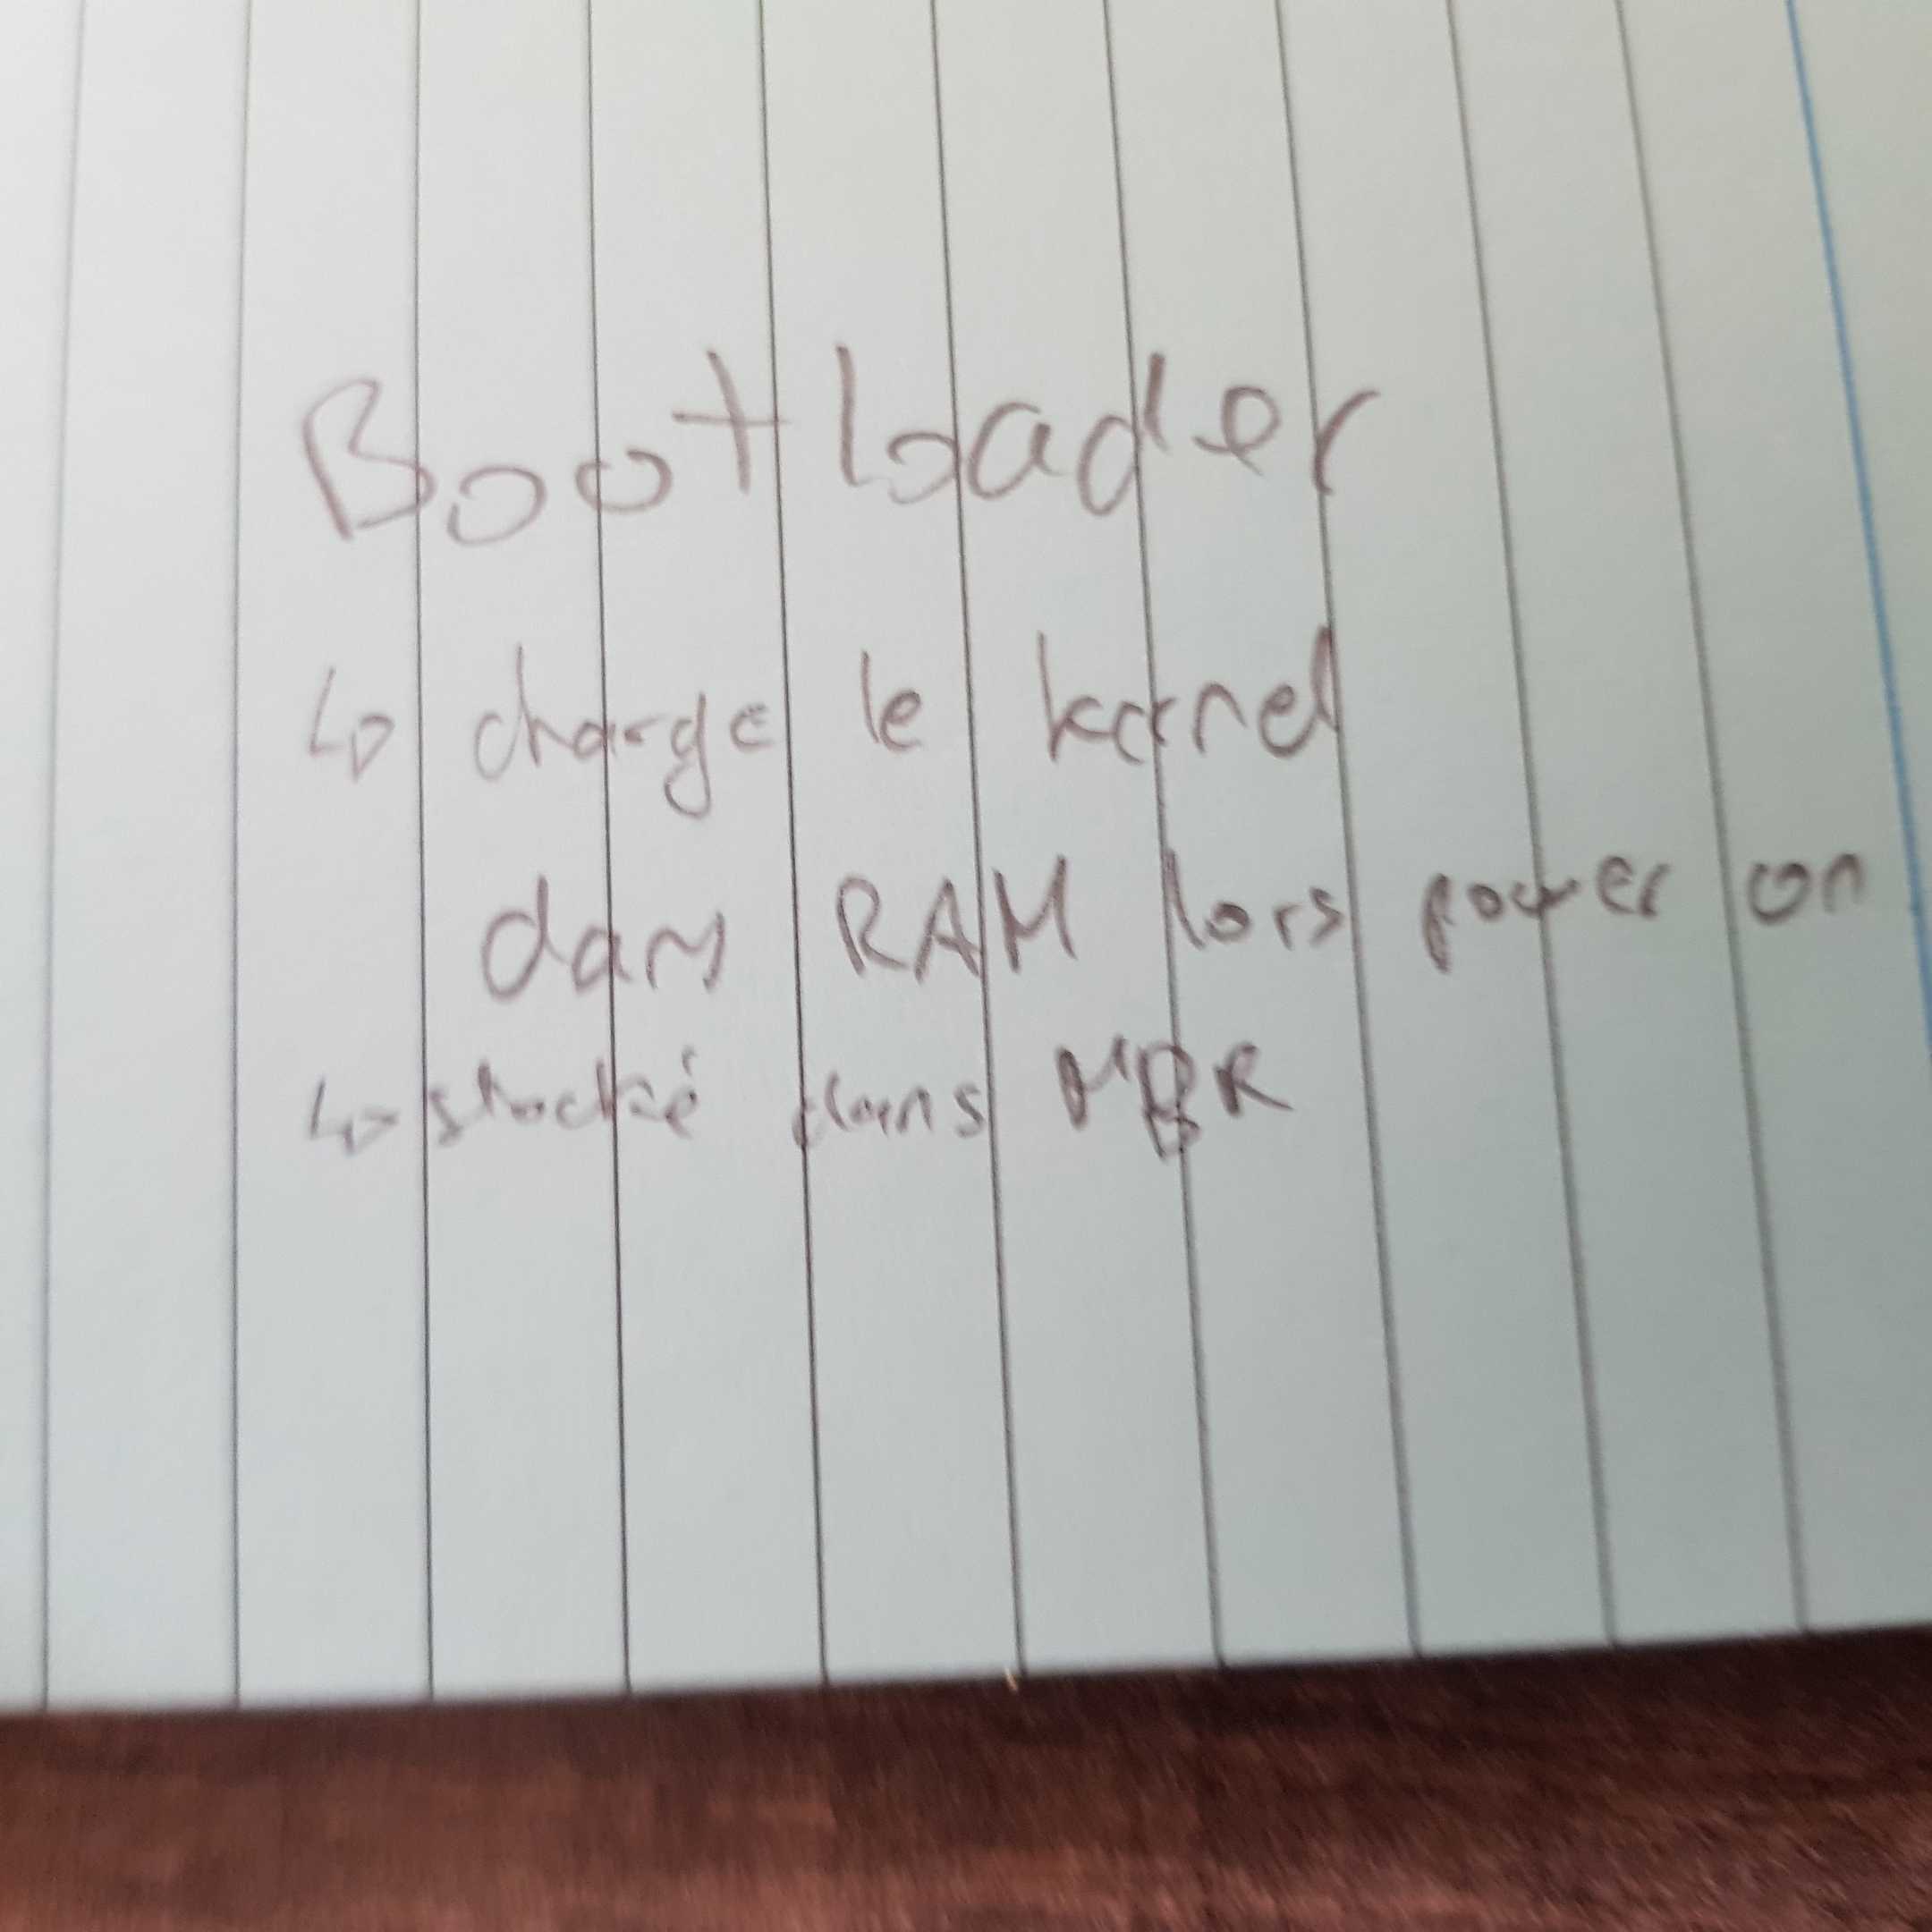 Bootloader
↳ charge le kernel
dans RAM lors power on
↳ stocké dans MBR